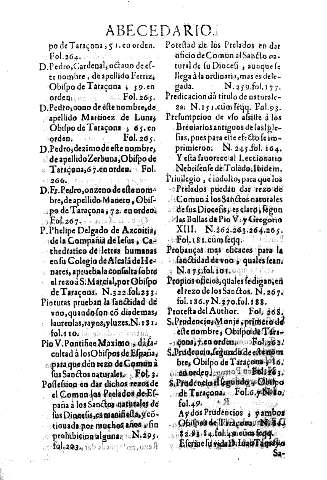 ABECEDARIO.
po de Taraçona, 51. en orden.
Fol. 264.
D. Pedro, Cardenal, octauo de es-
te nombre, de apellido Ferriz,
Obispo de Taraçona, 59. en
orden. Fol. 265.
D. Pedro, nono de este nombre, de
apellido Martinez de Luna,
Obispo de Taraçona, 65. en
orden. Fol. 265.
D. Pedro, dezimo de este nombre,
de apellido Zerbuna, Obispo de
Taraçona, 67. en orden. Fol.
266.
D. Fr. Pedro, onzeno de este nom-
bre, de apellido Manero, Obis-
po de Taraçona, 72. en orden.
Fol. 267.
P. Phelipe Delgado de Azcoitia,
de la Compañia de Iesus, Ca-
thedratico de letras humanas
en su Colegio de Alcalà de He-
nares, aprueba la consulta sobre
el rezo à S. Marcial, por Obispo
de Taraçona. N. 322. fol. 233.
Pinturas prueban la sanctidad de
vno, quando son cõ diademas,
laureolas, rayos, y luzes. N. 181.
fol. 110.
Pio V. Pontifice Maximo, dà fa-
cultad à los Obispos de España,
para que den rezo de Comun à
sus Sanctos naturales. Fol. 52.
Possession en dar dichos rezos de
el Comun los Prelados de Es-
paña à los Sanctos naturales de
sus Diocesis, es manifiesta, y con-
tinuada por muchos años, sin
prohibicion alguna. N. 295.
fol. 293.
Potestad de los Prelados en dar
oficio de Comun al Sancto na-
tural de su Diocesi, aunque se
llega à la ordinaria, mas es dele-
gada. N. 259. fol. 177.
Predicacion dà titulo de natural-
eza. N. 151. cum seqq. Fol. 93.
Presumpcion de vso assiste à los
Breviarios antiguos de las Igle-
sias, pues para este efecto se im-
primieron. N. 245. fol. 164.
Y esta favorece al Leccionatio
Nebisense de Toledo, Ibidem.
Priuilegio, è indulto, para que los
Prelados puedan dar rezo de
Comun à los Sanctos naturales
de sus Diocesis, es claro, segun
las Bullas de Pio V. y Gregorio
XIII. N. 262. 263. 264. 265.
Fol. 181. cum seqq.
Probanças mas eficaces para la
sanctidad de vno, quales sean.
N. 175. fol. 101.
Propios oficios, quales se digan, en
el rezo de los Sanctos. N. 267.
fol. 186. y N. 270. fol. 188.
Protesta del Author. Fol. 268.
S. Prudencio, Monje, primero de
este nombre, Obispo de Tara-
çona,
S. Prudencio, segundo de este nom-
bre, Obispo de Taraçona,
en orden.
S. Prudencio el segundo, Obispo
de Taraçona. Fol. 67. y N. 80.
fol. 49.
Ay dos Prudencios, y ambos
Obispos de Taraçona. N. 81.
82. 83. 84. fol. cum seqq.
Escriue su vida D. Iuan Tamayo
Sa-